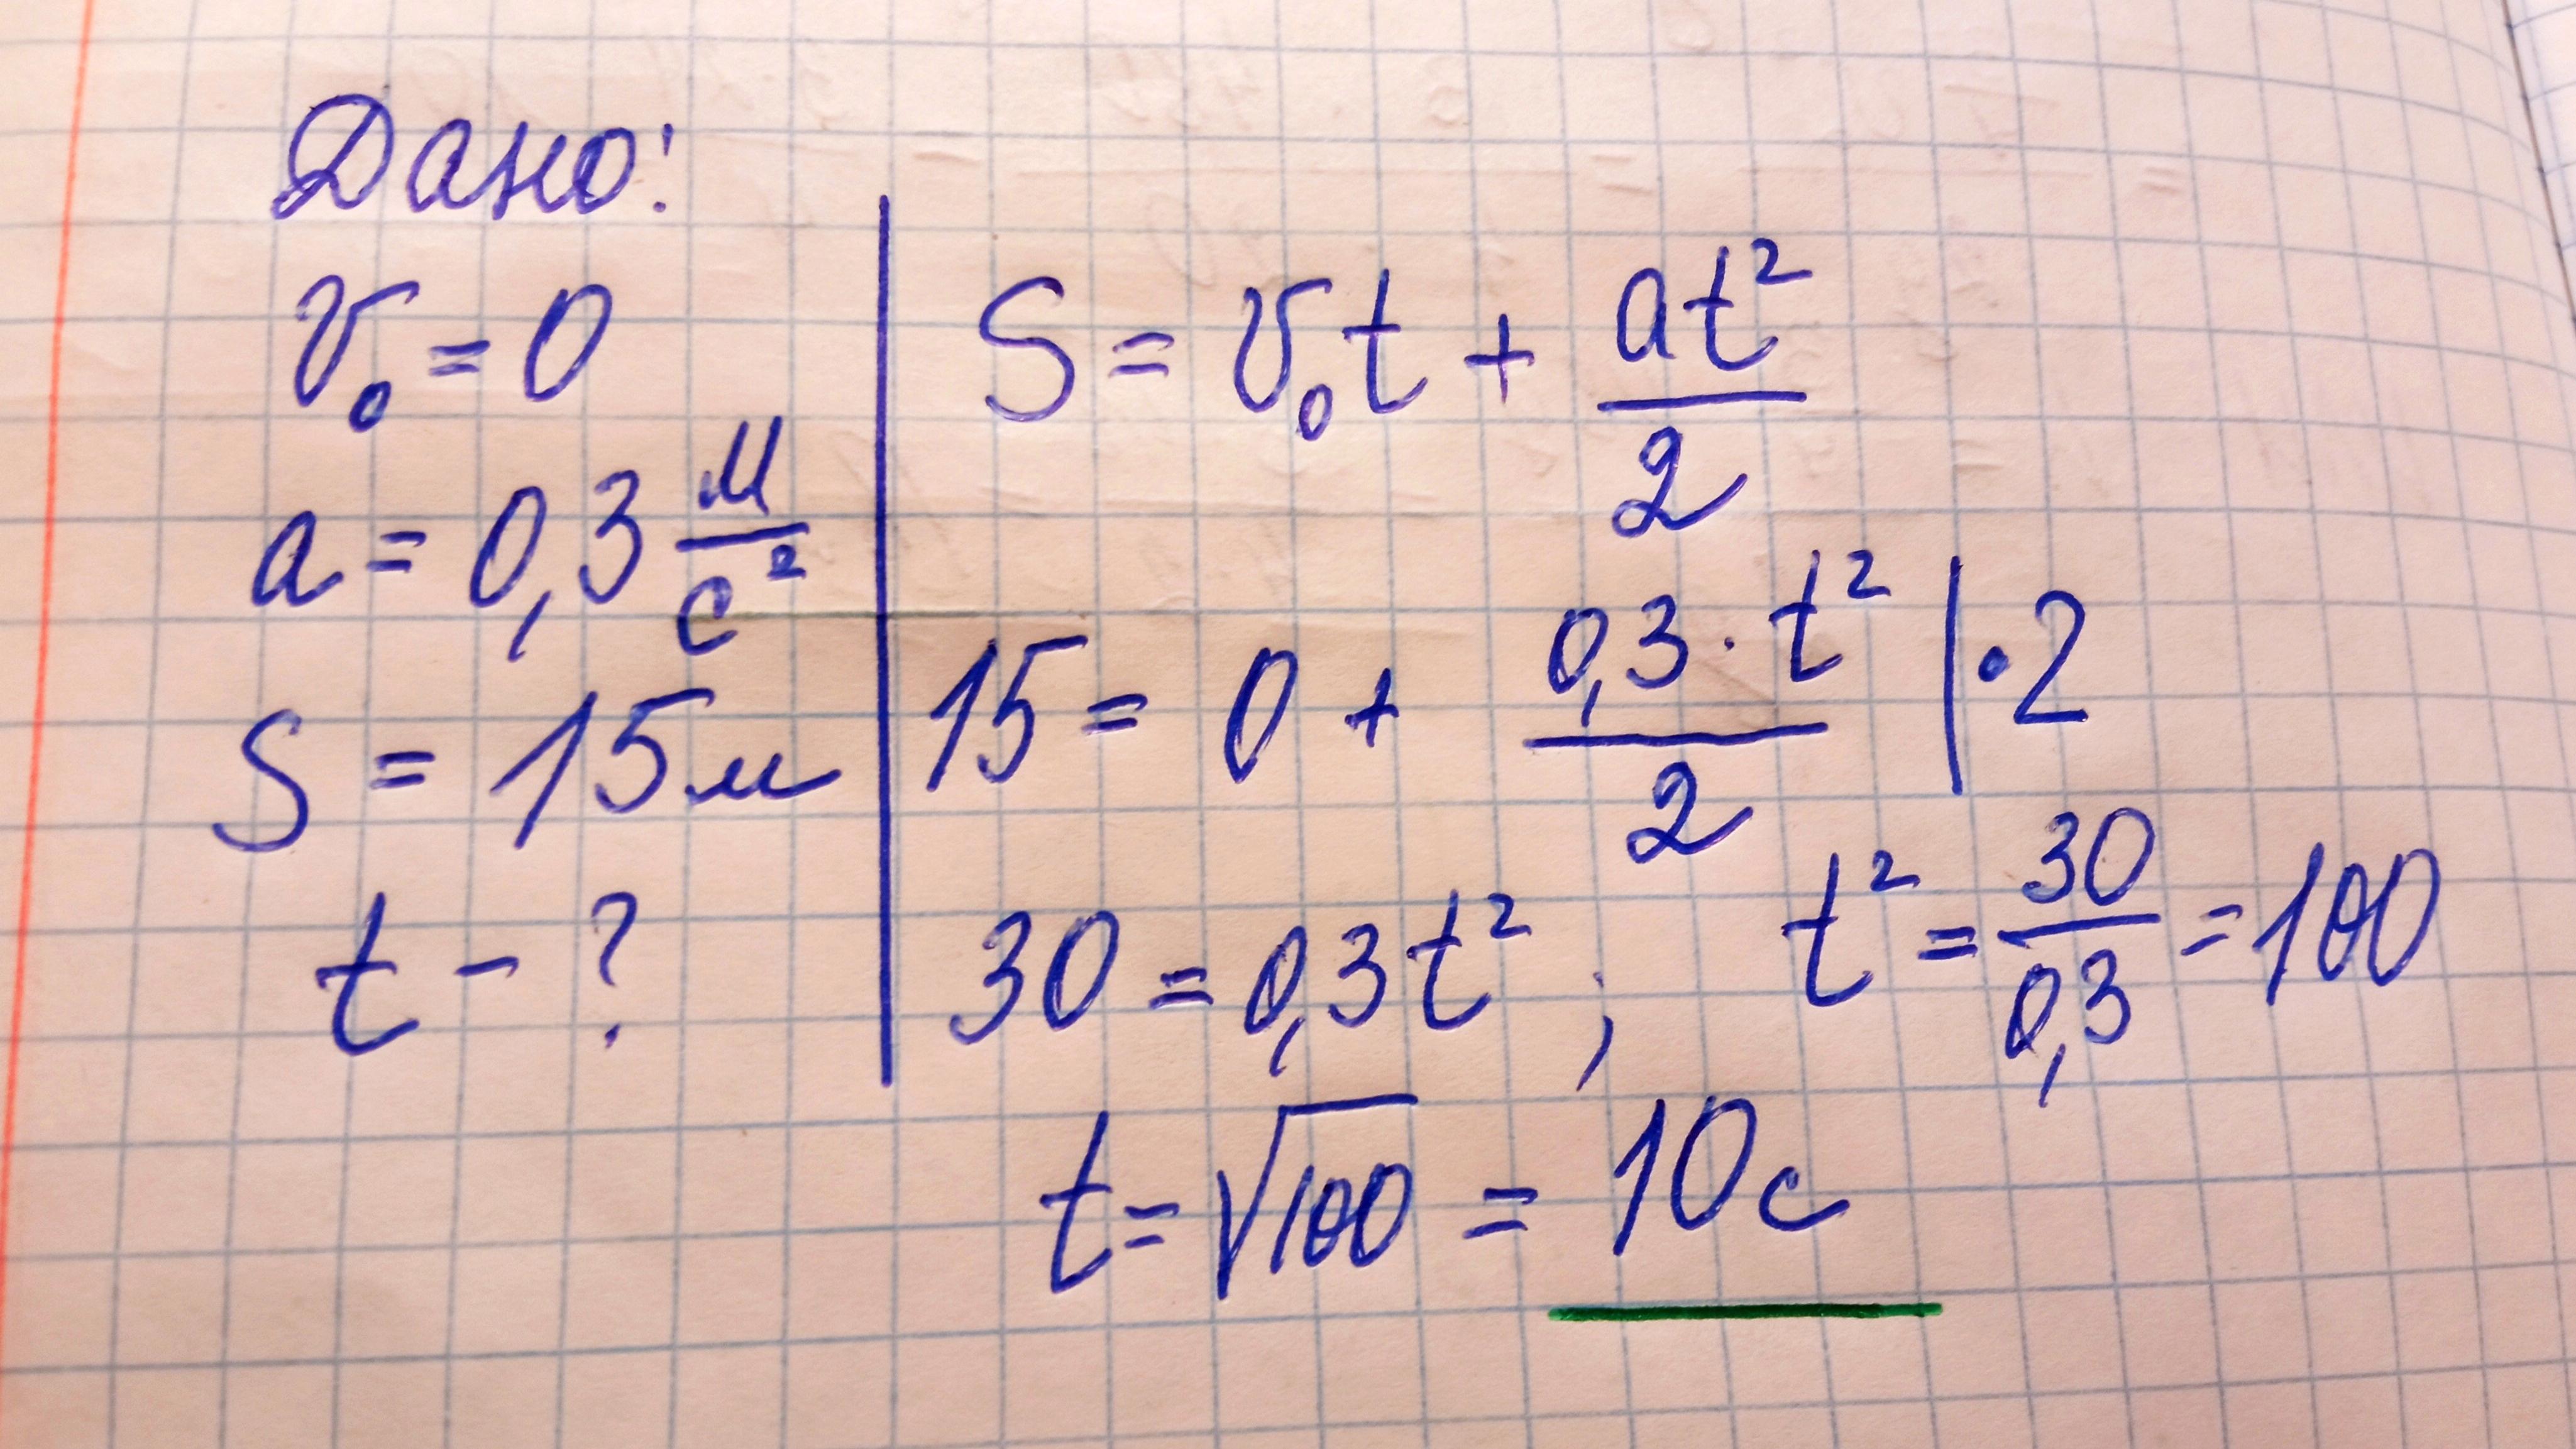 Дано:
v₀ = 0
a = 0,3 м/с²
S = 15 м
t - ?
S = v₀t + at²/2
15 = 0 + 0,3 · t²/2 | · 2
30 = 0,3t² ; t² = 30/0,3 = 100
t = √100 = 10 с